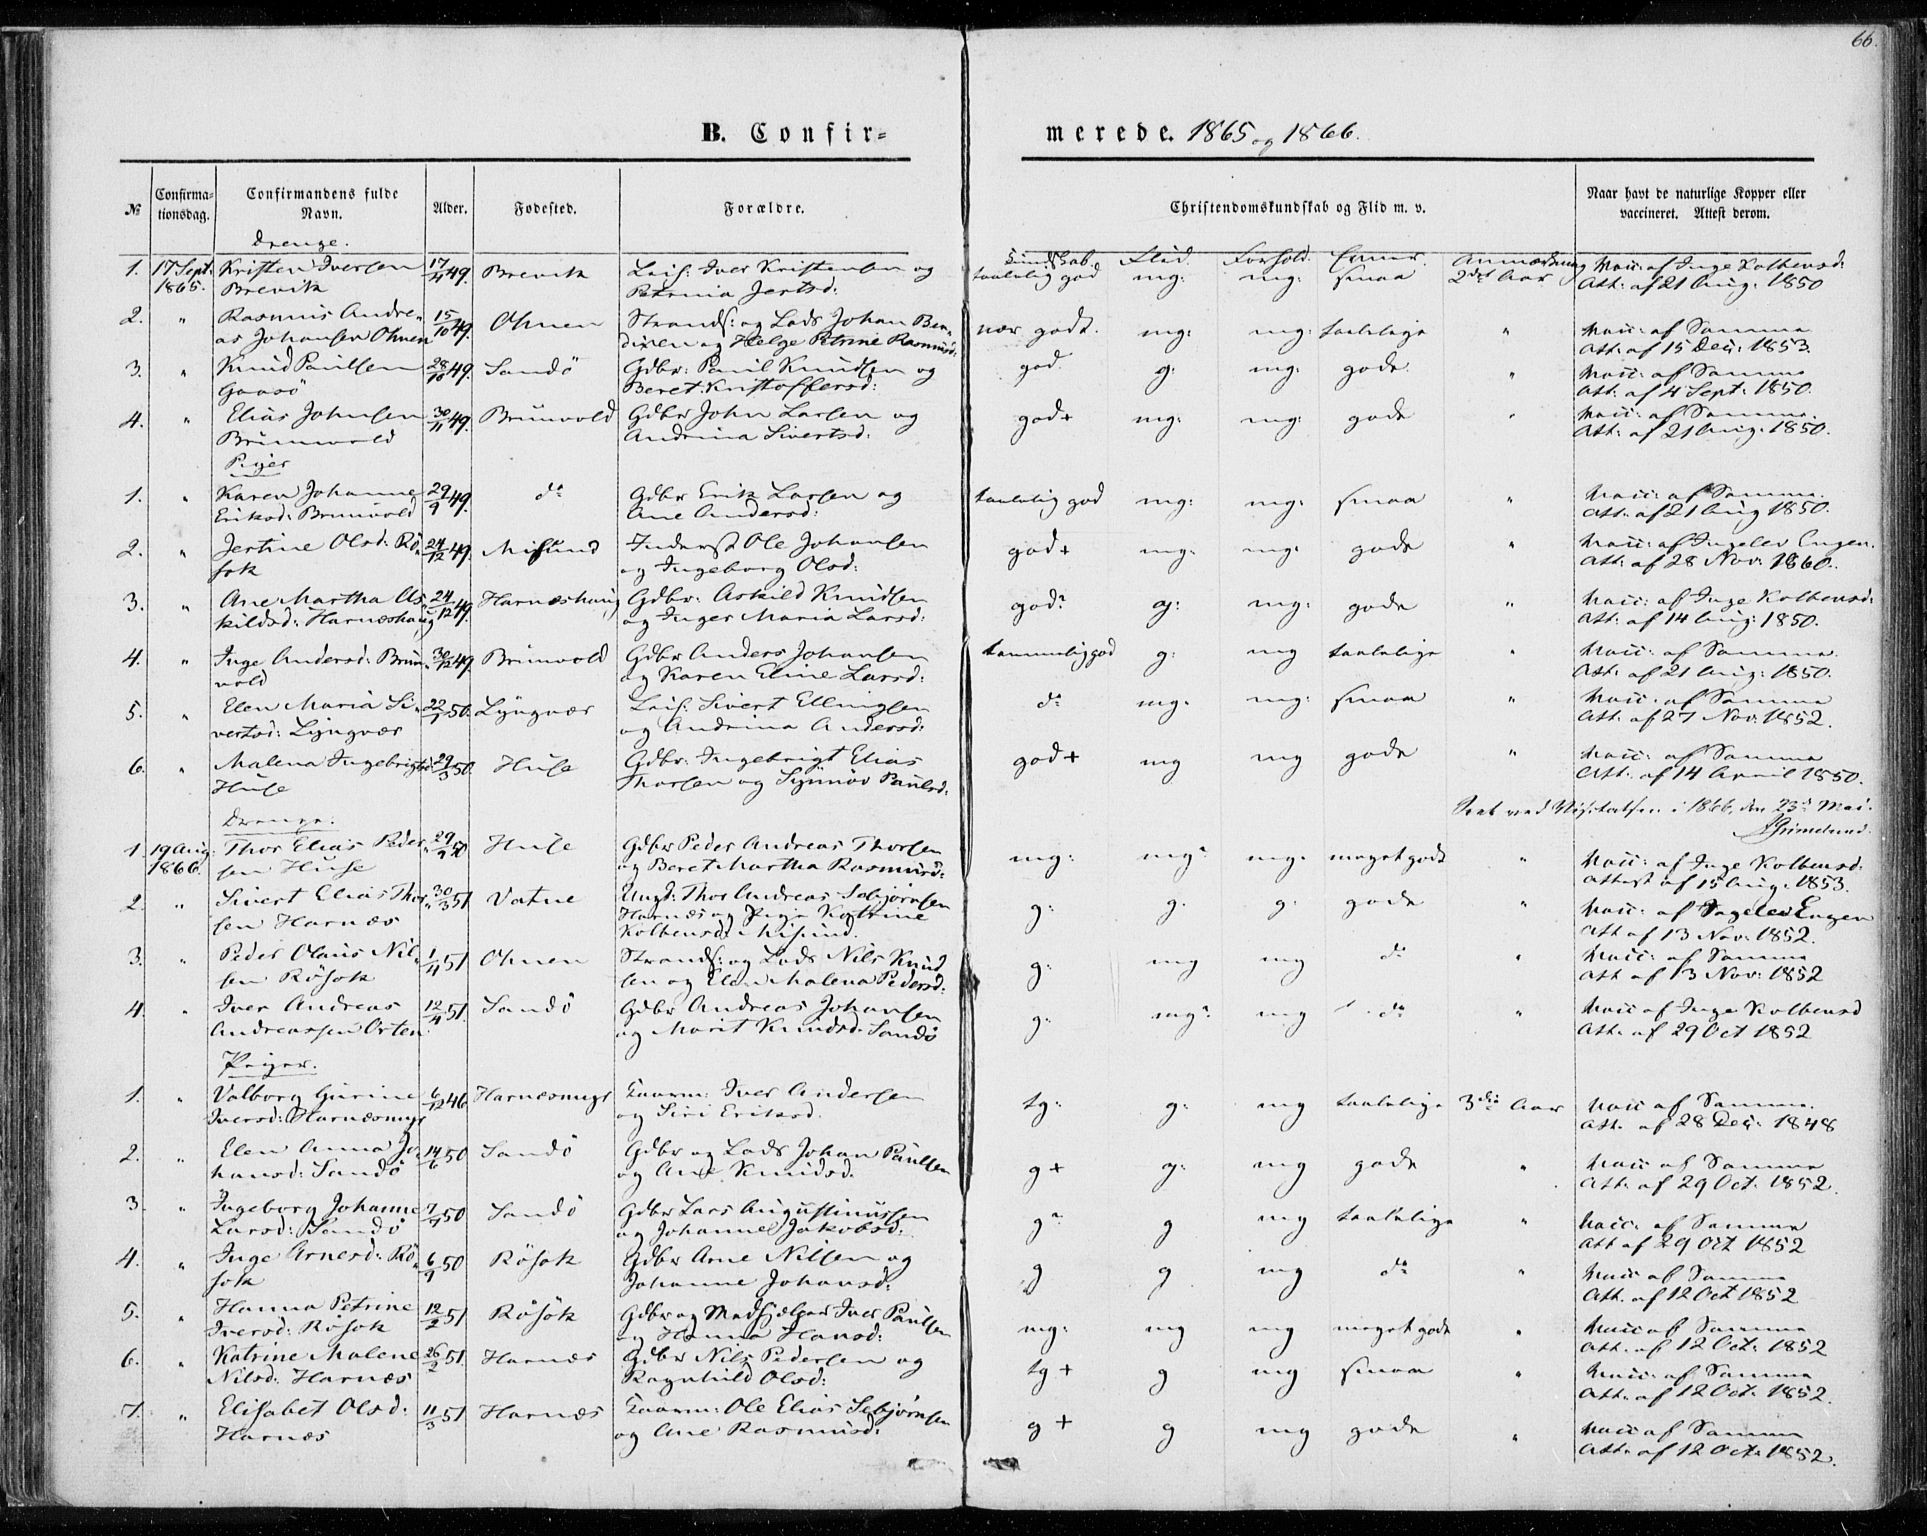 66.
B. Confir=
merede. 1865 og 1866.
№
Confirma-
tionsdag.
Confirmandens fulde
Navn.
Alder.
Fødested.
Forældre.
Christendomskundskab og Flid m. v.
Naar havt de naturlige Kopper eller
vaccineret. Attest derom.
Drenge.
Kundskab. Flid. Forhold. Evner. Anmærkning
1. 17 Sept: Kristen Iversen 17/4 49. Brevik Leif. Iver Kristensen og taalelig god mg: mg: smaa 2det Aar Vacc: af Inge Kolbensd:
1865. Brevik Petrnia Jertsd: Att: af 21 Aug: 1850
2. " Rasmus Andre- 15/10 49. Ohnen Strands: og Lods Johan Ben- nær godt. mg: mg: taalelige " Vacc: af Samme
as Johansen Ohnen dixen og Helge Petrine Rasmusd: Att: af 15 Dec: 1853.
3. " Knud Paulsen 28/10 49. Sandö Gdbr: Paul Knudsen og god g: mg: gode " Vacc: af Samme
Gaasö Beret Kristoffersd: Att: af 4 Sept: 1850.
4. " Elias Johnsen 30/11 49. Brunvold Gdbr John Larsen og god+ mg: mg: gode " Vacc: af Samme.
Brunvold Andrina Sivertsd: Att: af 21 Aug: 1850.
Piger
1. " Karen Johanne 29/9 49. do Gdbr Erik Larsen og taalelig god mg: mg: smaa " Vacc: af Samme.
Eriksd: Brunvold Ane Andersd: Att: af 21 Aug 1850.
2. " Jertine Olsd: Rö- 24/12 49. Misund Inderst Ole Johansen god+ mg: mg: gode " Vacc: af Ingelev Engen.
sok og Ingeborg Olsd: Att: af 28 Nov: 1860.
3. " Ane Martha As- 24/12 49. Harnæshaug Gdbr: Askild Knudsen god? g: mg: gode " Vacc: af Inge Kolbensd:
kildsd: Harnæshaug og Inger Maria Larsd: Att: af 14 Aug: 1850.
4. " Inge Andersd: Brun- 30/12 49. Brunvold Gdbr Anders Johansen temmelig god g: mg taalelige " Vacc: af Samme.
vold og Karen Eline Larsd: Att: af 21 Aug: 1850.
5. " Elen Maria Si- 22/1 50. Lyngvær Leif. Sivert Ellingsen do mg. mg: smaa " Vacc: af Samme
vertsd: Lyngvær og Andrina Andersd: Att: af 27 Nov: 1852.
6. " Malena Ingebrigtsd 29/3 50. Huse Gdbr: Ingebrigt Elias god+ mg mg gode " Vacc: af Samme
Huse Thorsen og Synnöv Paulsd: Att: af 14 April 1850.
Seet ved Visitatsen i 1866, den 23d Mai.
Grimelund.
Drenge.
1. 19 Aug: Thor Elias Peder- 29/9 50 Huse Gdbr Peder Andreas Thorsen mg: mg? mg. meget gode " Vacc: af Inge Kolbensd:
1866. sen Huse og Beret Martha Rasmusd: Attest af 15 Aug: 1853.
2. " Sivert Elias Thor- 30/3 51 Vatne Ungk: Thor Andreas Sebjørnsen g: g. g: gode " Vacc: af Ingelev Engen
sen Harnæs Harnæs og Pige Katrine Att af 13 Nov. 1852.
Kolbensd: Misund.
3. " Peder Olaus Nil- 1/4 51 Ohnen Strands: og Lods Nils Knud g: mg mg do " Vacc: af Samme
sen Rösok sen og Elen Malena Pedersd: Att af 13 Nov: 1852
4. " Iver Andreas 12/4 51. Sandö Gdbr Andreas Johansen g: mg? mg do " Vacc af Inge Kolbensd
Andreassen Orten og Marit Knudsd: Sandö Att. af 29 Oct 1852
Piger.
1. " Valborg Gurine 6/12 46. Harnæsmyr Gaarm: Iver Andersen tg: g: mg taalelige 3die Aar Vacc af Samme.
Iversd: Harnæsmyr og Siri Eriksd. Att. af 28 Dec: 1848
2. " Elen Anna Jo- 14/6 50 Sandö Gdbr og Lods Johan Paulsen g+ g: mg gode " Vacc af Samme
hansd: Sandö og Ane Knudsd. Att. af 29 Oct. 1852.
3. " Ingeborg Johanne 7/9 50 Sandö Gdbr Lars Augustinussen g? g mg taalelige " Vacc: af Samme
Larsd: Sandö og Johanne Jakobsd: Att af 29 Oct 1852
4. " Inge Arnesd: Rö- 6/9 50 Rösok Gdbr Arne Nilsen og g g mg do " Vacc af Samme
sok Johanne Johansd: Att. af 12 Oct 1852
5. " Hanna Petrine 12/2 51 Rösok Gdbr og Medhjælper Iver Paulsen mg: mg mg meget gode " Vacc af Samme
Iversd: Rösok og Hanna Hansd: Att. af 12 Oct. 1852
6. " Katrine Malene 26/2 51. Harnæs Gdbr Nils Pedersen og tg+ g mg smaa " Vacc: af Samme
Nilsd: Harnæs Ragnhild Olsd: Att. af 12 Oct. 1852.
7. " Elisabet Olsd: 11/3 51 Harnæs Gaarm: Ole Elias Sebjørnsen g+ g mg gode " Vacc af Samme
Harnæs og Ane Rasmusd: Att. af 12 Oct. 1852.